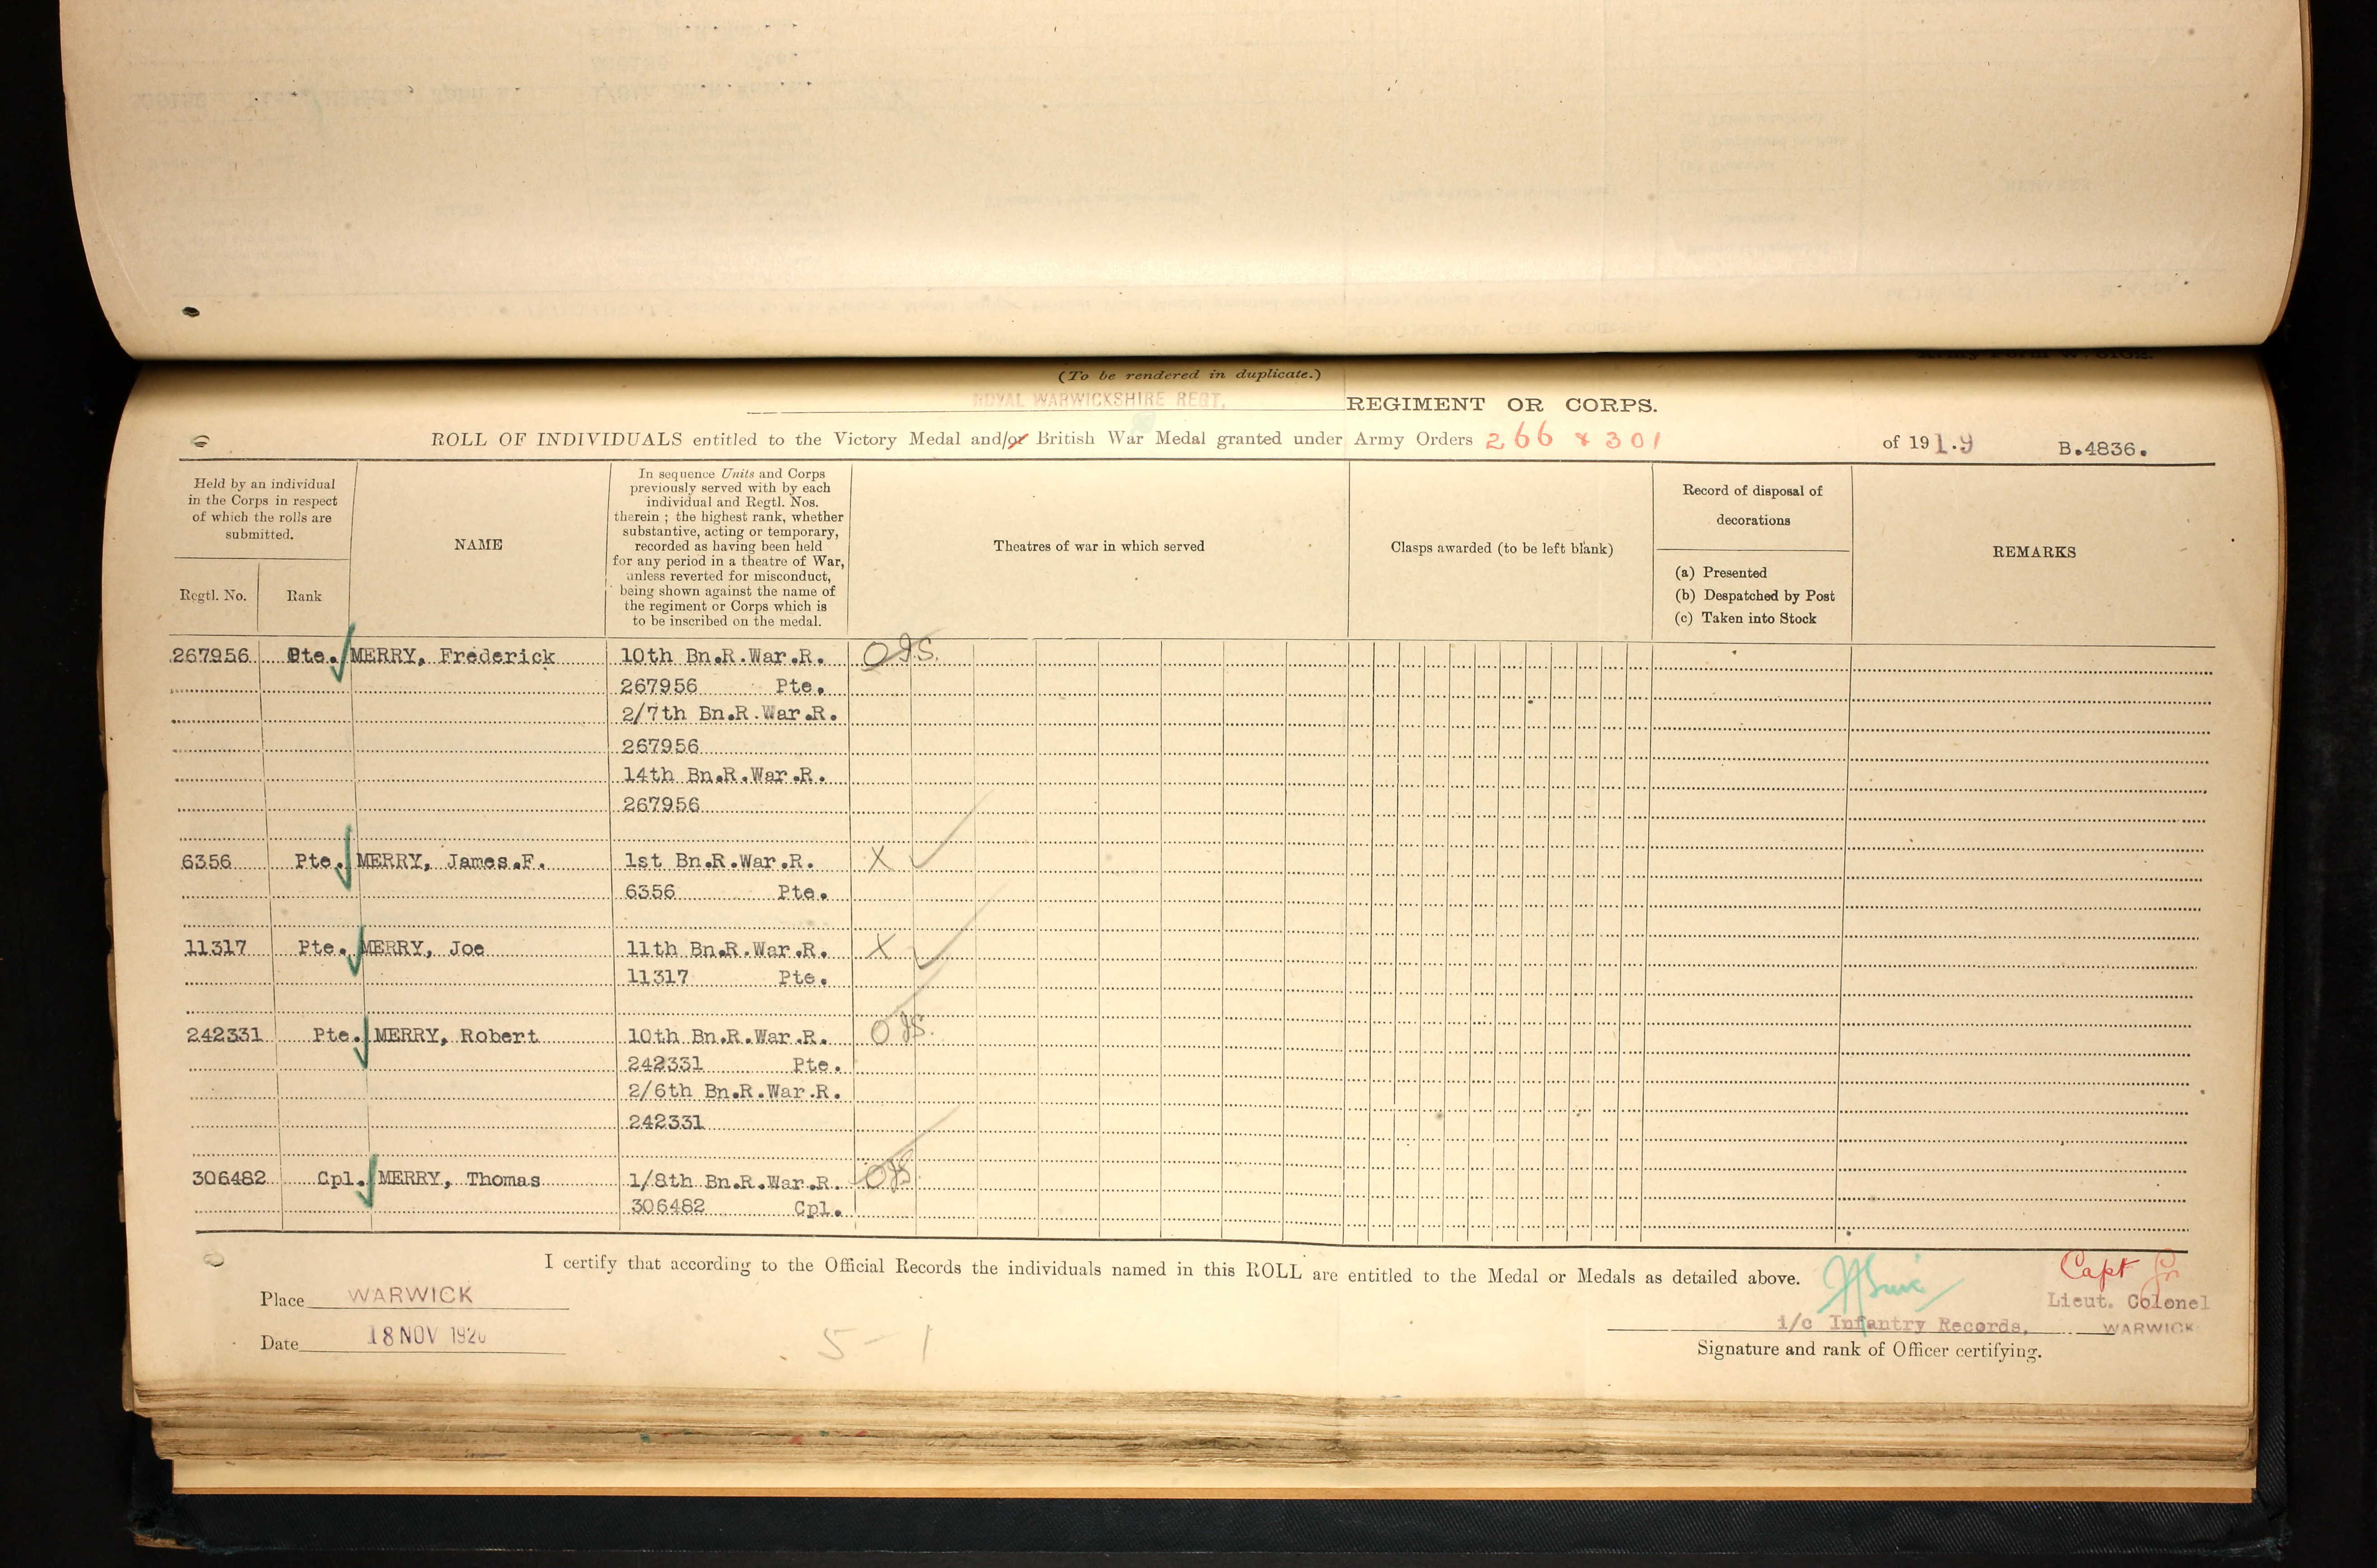 (To be rendered in duplicate.)
ROYAL WARWICKSHIRE REGT. REGIMENT OR CORPS.
ROLL OF INDIVIDUALS entitled to the Victory Medal and/or British War Medal granted under Army Orders 266 & 301 of 191.9 B.4836.
Held by an individual
in the Corps in respect
of which the rolls are
submitted.
Regtl. No. Rank
NAME
In sequence Units and Corps
previously served with by each
individual and Regtl. Nos.
therein ; the highest rank, whether
substantive, acting or temporary,
recorded as having been held
for any period in a theatre of War,
unless reverted for misconduct,
being shown against the name of
the regiment or Corps which is
to be inscribed on the medal.
Theatres of war in which served
Clasps awarded (to be left blank)
Record of disposal of
decorations
(a) Presented
(b) Despatched by Post
(c) Taken into Stock
REMARKS
267956 Pte. MERRY, Frederick 10th Bn.R.War.R.
267956 Pte.
2/7th Bn.R.War.R.
267956
14th Bn.R.War.R.
267956
6356 Pte. MERRY, James.F. 1st Bn.R.War.R. X
6356 Pte.
11317 Pte. MERRY, Joe 11th Bn.R.War.R. X
11317 Pte.
242331 Pte. MERRY, Robert 10th Bn.R.War.R.
242331 Pte.
2/6th Bn.R.War.R.
242331
306482 Cpl. MERRY, Thomas 1/8th Bn.R.War.R.
306482 Cpl.
I certify that according to the Official Records the individuals named in this ROLL are entitled to the Medal or Medals as detailed above.
Place WARWICK
Date 18 NOV 1920
5-1
Capt
Lieut. Colonel
i/c Infantry Records, WARWICK
Signature and rank of Officer certifying.